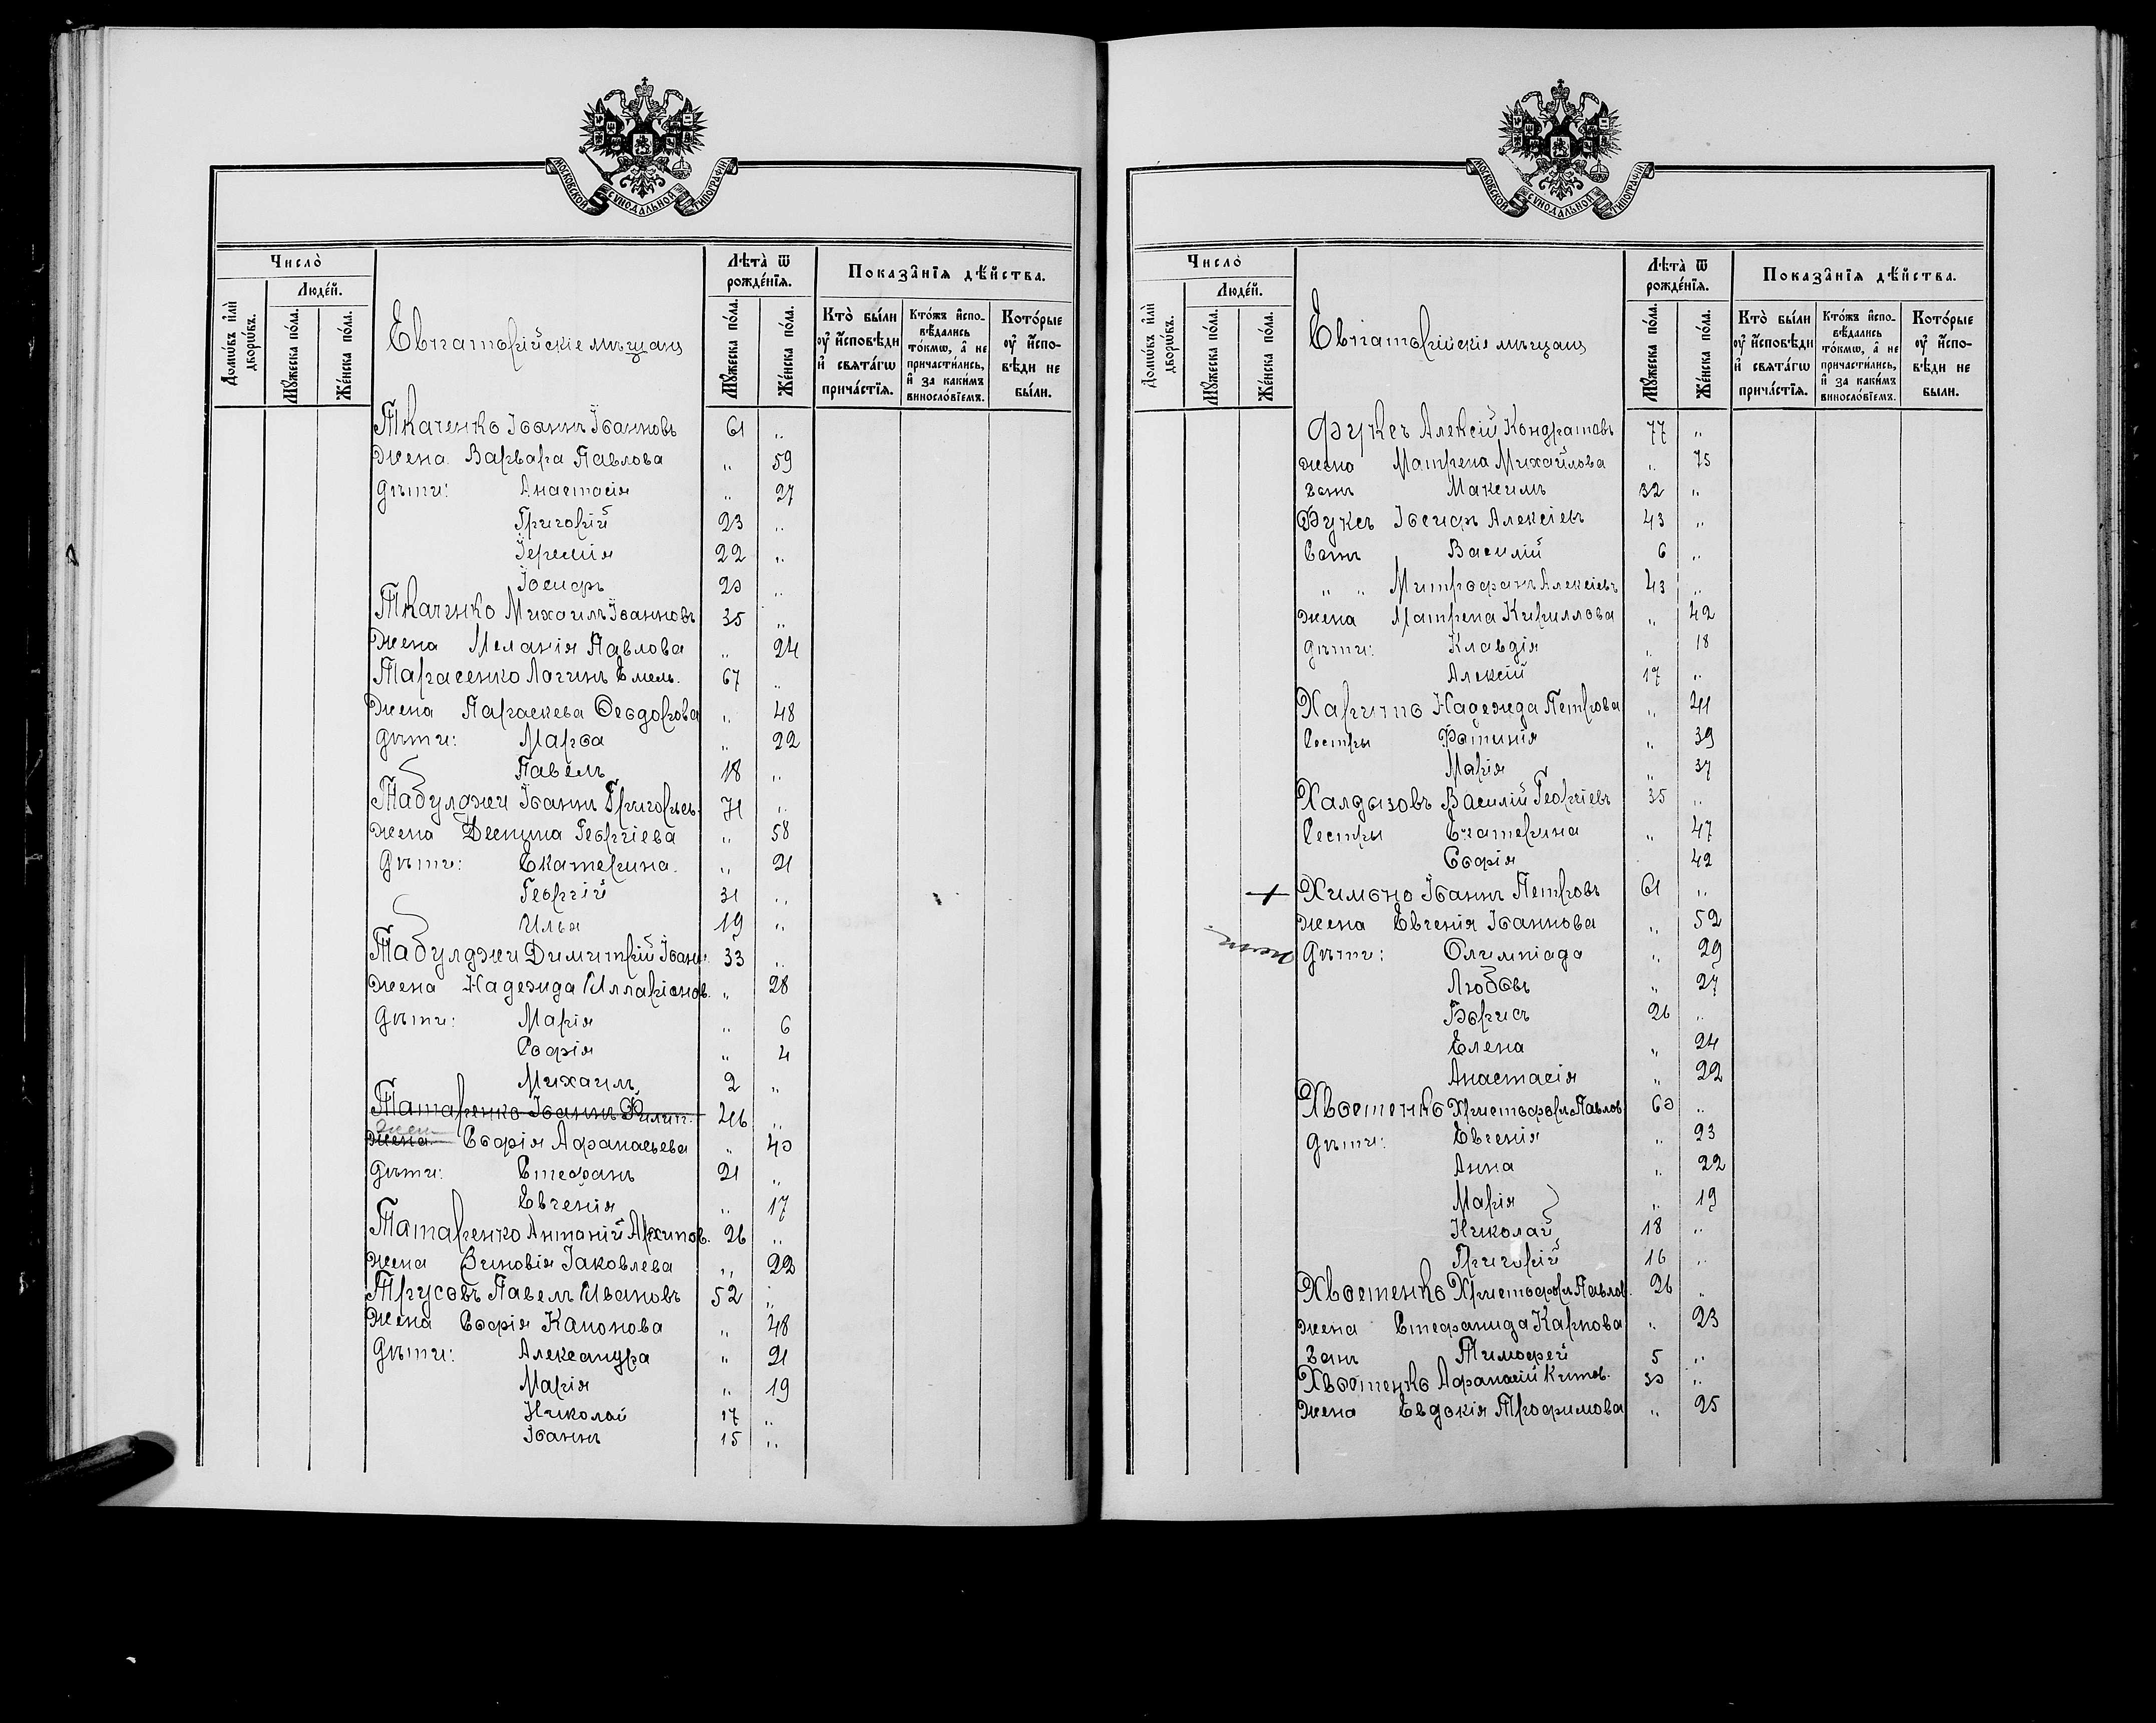 МОСКОВСКОЙ СѴНОДАЛЬНОЙ ТИПОГРАФІИ
Число̀
Людéй.
Домѡ́въ и҆лѝ дворѡ́въ.
Мꙋ́жеска пóла.
Жéнска пóла.
Евпаторійскіе мѣщане
Лѣта̀ ѿ рождéнїѧ.
Мꙋ́жеска пóла.
Жéнска пóла.
Показа̑нїѧ дѣ́йства.
Кто̀ бы́ли ᲂу҆ и҆́сповѣди и҆ свѧта́гѡ прича́стїѧ.
Кто́жъ и҆спо-
вѣ́дались
то́кмѡ, а҆ не
причасти́лись,
и҆ за каки́мъ
винослóвїемъ.
Котóрые ᲂу҆ и҆́спо-
вѣди не
бы́ли.
Ткаченко Іоаннъ Іоанновъ 61 "
жена Варвара Павлова " 59
дѣти: Анастасія " 27
Григорій 23 "
Іеремія 22 "
Іосифъ 20 "
Ткаченко Михаилъ Іоанновъ 35 "
жена Меланія Павлова " 24
Тарасенко Логинъ Емель. 67 "
жена Параскева Ѳеодорова " 48
дѣти: Марѳа " 22
Павелъ 18 "
Табулджи Іоаннъ Григорьев. 71 "
жена Деспина Георгіева " 58
дѣти: Екатерина. " 21
Георгій 31 "
Илья 19 "
Табулджи Димитрій Іоанн. 33 "
жена Надежда Илларіонов. " 28
дѣти: Марія " 6
Софія " 4
Михаилъ 2 "
Татаренко Іоаннъ Филип. 46 "
жена Софія Афанасьева " 40
дѣти: Стефанъ 21 "
Евгенія " 17
Татаренко Антоній Архипов. 26 "
жена Зиновія Іаковлева " 22
Трусовъ Павелъ Ивановъ 52 "
жена Софія Капонова " 48
дѣти: Александра " 21
Марія " 19
Николай 17 "
Іоаннъ 15 "
МОСКОВСКОЙ СѴНОДАЛЬНОЙ ТИПОГРАФІИ
Число̀
Людéй.
Домѡ́въ и҆лѝ дворѡ́въ.
Мꙋ́жеска пóла.
Жéнска пóла.
Евпаторійскіе мѣщане
Лѣта̀ ѿ рождéнїѧ.
Мꙋ́жеска пóла.
Жéнска пóла.
Показа̑нїѧ дѣ́йства.
Кто̀ бы́ли ᲂу҆ и҆́сповѣди и҆ свѧта́гѡ прича́стїѧ.
Кто́жъ и҆спо-
вѣ́дались
то́кмѡ, а҆ не
причасти́лись,
и҆ за каки́мъ
винослóвїемъ.
Котóрые ᲂу҆ и҆́спо-
вѣди не
бы́ли.
Фуксъ Алексій Кондратовъ 77 "
жена Матрена Михайлова " 75
сынъ Максимъ 32 "
Фуксъ Іосифъ Алексіевъ 43 "
сынъ Василій 6 "
" " Митрофанъ Алексіевъ 43 "
жена Матрена Кириллова " 42
дѣти: Клавдія " 18
Алексій 17 "
Харипо Надежда Петрова " 41
Сестры Фотинія " 39
Марія " 37
Халдызовъ Василій Георгіевъ 35 "
Сестры Екатерина " 47
Софія 42
Химоно Іоаннъ Петровъ 61 "
жена Евгенія Іоаннова " 52
дѣти: Олимпіада " 29
Любовь " 27
Борисъ 26 "
Елена " 24
Анастасія " 22
Хвостенко Христофоръ Павлов 60 "
дѣти: Евгенія " 23
Анна " 22
Марія " 19
Николай 18 "
Григорій 16 "
Хвостенко Христофоръ Павлов. 26 "
жена Стефанида Карпова " 23
сынъ Тимофей 5 "
Хвостенко Афанасій 30 "
жена Евдокія Трофимова " 25